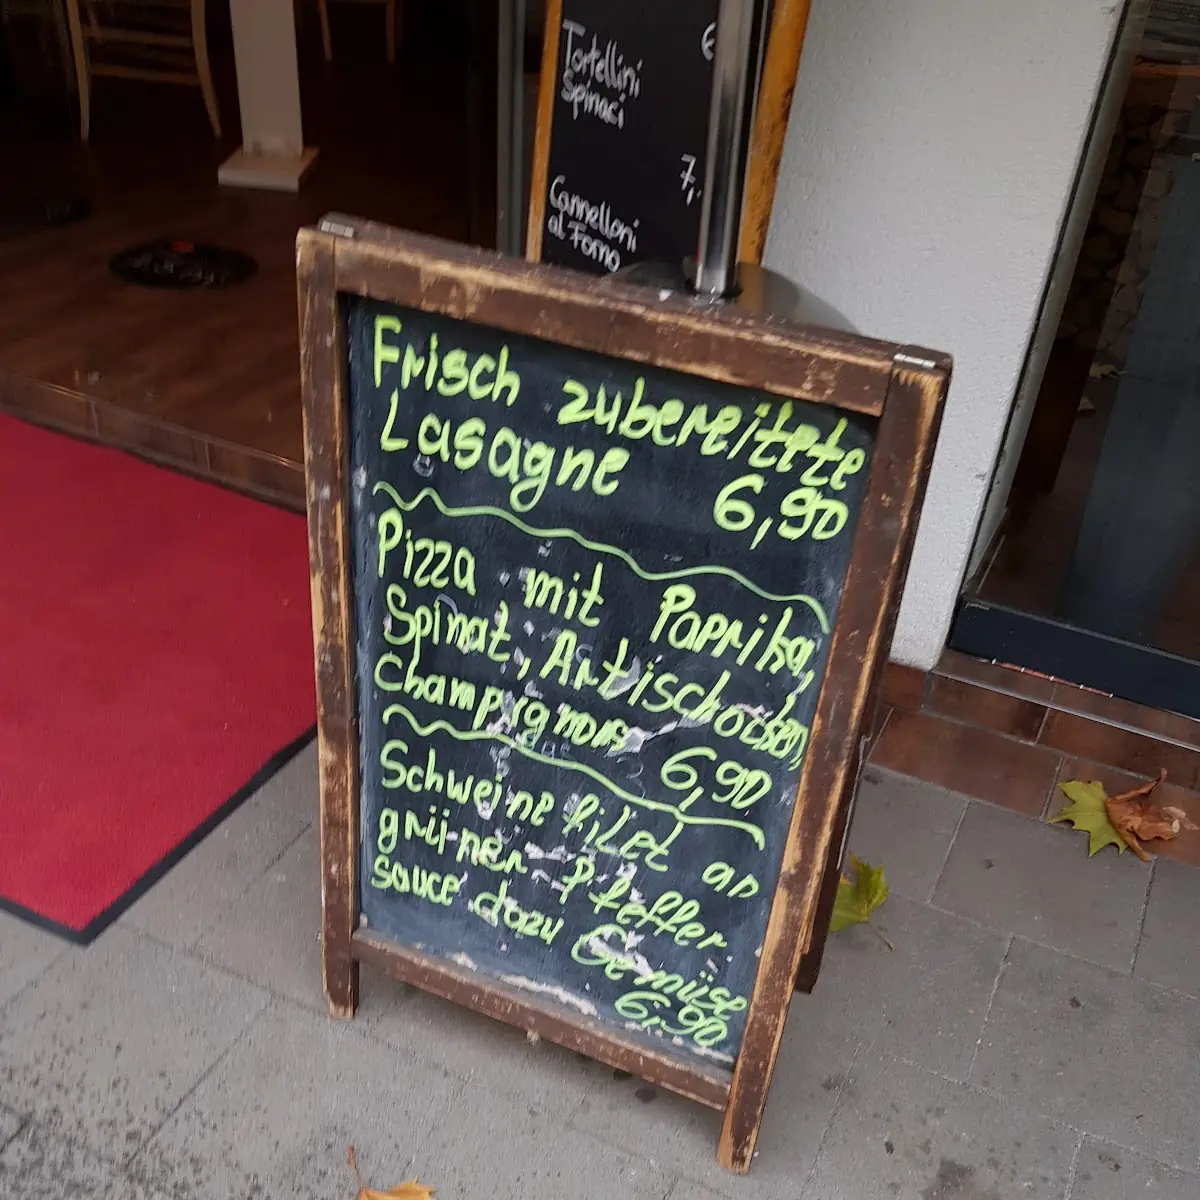 Tortellini
Spinaci
7,-
Cannelloni
al Forno
Frisch zubereitete
Lasagne 6,90
Pizza mit Paprika,
Spinat, Artischocken,
Champignons 6,90
Schweinefilet an
grü-ner Pfeffer
sauce dazu Gemüse
6,90